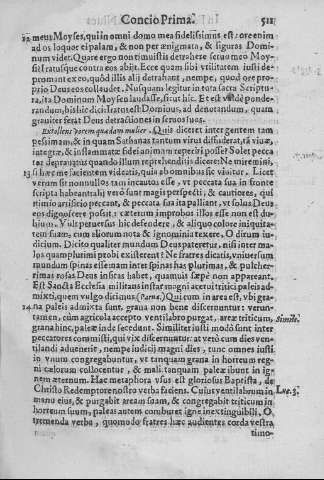 Concio Prima. 511
meus Moyses, qui in omni domo mea fidelissimus est: ore enim
ad os loquor ei palam, & non per ænigmata, & figuras Domi
num videt. Quare ergo non timuistis detrahere seruo meo Moy-
si? Iratusque contra eos abijt. Ecce quam sibi vtilitatem iusti de-
promant ex eo, quòd illis alij detrahant, nempe, quòd ore pro-
prio Deus eos collaudet. Nusquam legitur in tota sacra Scriptu-
ra, ita Dominum Moysen laudasse, sicut hîc. Et est valdè ponde-
randum, hîc dici: Iratus est Dominus, ad denotandum, quam
grauiter ferat Deus detractiones in seruos suos.
Extollens vocem quædam mulier. Quis diceret inter gentem tam
pessimam, & in quam Sathanas tantum virus diffuderat, tã viuæ,
integræ, & inflammatæ fidei animam reperiri posse? Solet pecca
tor deprauatus quando illum reprehenditis dicere: Ne miremini,
13 si hæc me facientem videatis, quia ab omnibus sic viuitur. Licet
verum sit nonnullos tam incautè esse, vt peccata sua in fronte
scripta habeant: alij verò sunt magis perspecti, & cautiores, qui
nimio artificio peccant, & peccata sua ita palliant, vt solus Deus
eos dignoscere possit: cæterum improbus illos esse non est du-
bium. Vult peruersus hic defendere, & aliquo colore iniquita-
tem suam, cum eliorum nota & ignominia texere. O dirum iu-
dicium. Dicito qualiter mundum Deus pateretur, nisi inter ma-
los quamplurimi probi existerent? Ne fratres dicatis, vniuersum
mundum spinas esse: nam inter spinas has plurimas, & pulcher-
rimas rosas Deus insitas habet, quamuis sæpè non appareant.
Est Sancta Ecclesia militans instar magni acerui tritici paleis ad-
mixti, quem vulgo dicimus (Parua.) Qui cum in area est, vbi gra-
14 na paleis admixta sunt, grana non benè discernuntur: verun-
tamen, cùm agricola accepto ventilabro purgat, areæ triticum, Simile.
grana hinc, paleæ inde secedunt. Similiter iusti modò sunt inter
peccatores commisti, qui vix discernuntur: at verò cum dies ven-
tilandi aduenerit, nempe iudicij magni dies, tunc omnes iusti
in vnum congregabuntur, vt tanquam grana in horreum reg-
ni cælorum collocentur, & mali tanquam paleæ ibunt in ig-
nem æternum. Hac metaphora vsus est gloriosus Baptista, de
Christo Redemptore nostro verba faciens. Cuius ventilabrum in Luc. 3.
manu eius, & purgabit aream suam, & congregabit triticum in
horreum suum, paleas autem comburet igne inextinguibili. O,
tremenda verba, quomodo fratres hæc audientes corda vestra
timo-